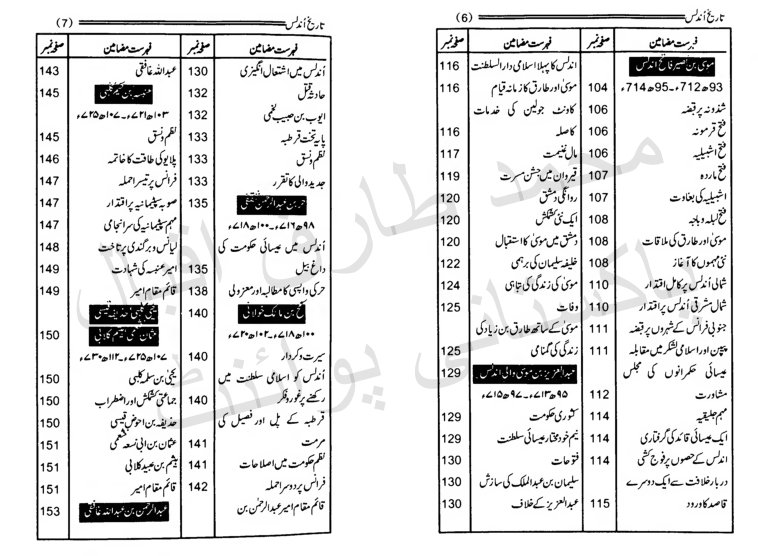 تاریخ اُندلس (6)
فہرست مضامین صفحہ نمبر
موسیٰ بن نصیر فاتح اندلس
93ھ-712ء-95ھ-714ء 104
شذونہ پر قبضہ 106
فتح قرمونہ 106
فتح اشبیلیہ 106
فتح ماردہ 107
اشبیلیہ کی بغاوت 107
فتح لبلہ و باجہ 108
موسیٰ اور طارق کی ملاقات 108
نئی مہموں کا آغاز 108
شمالی اُندلس پر کامل اقتدار 110
شمال مشرقی اُندلس پر اقتدار 110
جنوبی فرانس کے شہروں پر قبضہ 111
پیپن اور اسلامی لشکر میں مقابلہ 111
عیسائی حکمرانوں کی مجلس
مشاورت 112
مہم جلیقیہ 114
ایک عیسائی قائد کی گرفتاری 114
اُندلس کے حصوں پر فوج کشی 114
دربار خلافت سے ایک دوسرے
قاصد کا ورود 115
فہرست مضامین صفحہ نمبر
اندلس کا پہلا اسلامی دارالسلطنت 116
موسیٰ اور طارق کا زمانہ قیام 116
کاونٹ جولین کی خدمات
کا صلہ 116
مال غنیمت 117
قیروان میں جشن مسرت 119
روانگی دمشق 120
ایک نئی کشمکش 120
دمشق میں موسیٰ کا استقبال 120
خلیفہ سلیمان کی برہمی 122
موسیٰ کی زندگی کی تباہی 124
وفات 125
موسیٰ کے ساتھ طارق بن زیاد کی
زندگی کی گمنامی 125
عبدالعزیز بن موسیٰ والی اندلس 129
95ھ-713ء-97ھ-715ء
کشوری حکومت 129
نیم خود مختار عیسائی سلطنت 129
فتوحات 130
سلیمان بن عبدالملک کی سازش 130
عبدالعزیز کے خلاف 130
تاریخ اُندلس (7)
فہرست مضامین صفحہ نمبر
اُندلس میں اشتعال انگیزی 130
حادثہ قتل 132
ایوب بن حبیب لخمی 132
پایہ تخت قرطبہ 133
نظم و نسق 133
جدید والی کا تقرر 133
حر بن عبدالرحمٰن ثقفی 135
۹۸ھ-۷۱۶ء-۱۰۰ھ-۷۱۸ء
اُندلس میں عیسائی حکومت کی
داغ بیل 135
حر کی واپسی کا مطالبہ اور معزولی 138
سمح بن مالک خولانی 140
۱۰۰ھ-۷۱۸ء-۱۰۲ھ-۷۲۰ء
سیرت و کردار 140
اُندلس کو اسلامی سلطنت میں
رکھنے پر غور و فکر 140
قرطبہ کے پل اور فصیل کی
مرمت 141
نظم حکومت میں اصلاحات 141
فرانس پر دوسرا حملہ 142
قائم مقام امیر عبدالرحمٰن بن
فہرست مضامین صفحہ نمبر
عبداللہ غافقی 143
عنبسہ بن سحیم کلبی 145
۱۰۳ھ-۷۲۱ء-۱۰۷ھ-۷۲۵ء
نظم و نسق 145
پلایو کی طاقت کا خاتمہ 146
فرانس پر تیسرا حملہ 147
صوبہ سپٹیمانیہ پر اقتدار 147
مہم سپٹیمانیہ کی سرانجامی 147
لیانس و برگنڈی پر تاخت 148
امیر عنبسہ کی شہادت 149
قائم مقام امیر 149
یحییٰ کلبی حذیفہ قیسی
عثمان خثعمی ہیثم کلابی 150
۱۰۷ھ-۷۲۵ء-۱۱۲ھ-۷۳۰ء
یحییٰ بن سلمہ کلبی 150
جماعتی کشمکش اور اضطراب 150
حذیفہ بن احوص قیسی 150
عثمان بن ابی نسعہ خثعمی 151
ہیثم بن عبید کلابی 151
قائم مقام امیر 151
عبدالرحمن بن عبداللہ غافقی 153
محمد طارق اقبال
پاکستانی پوائنٹ